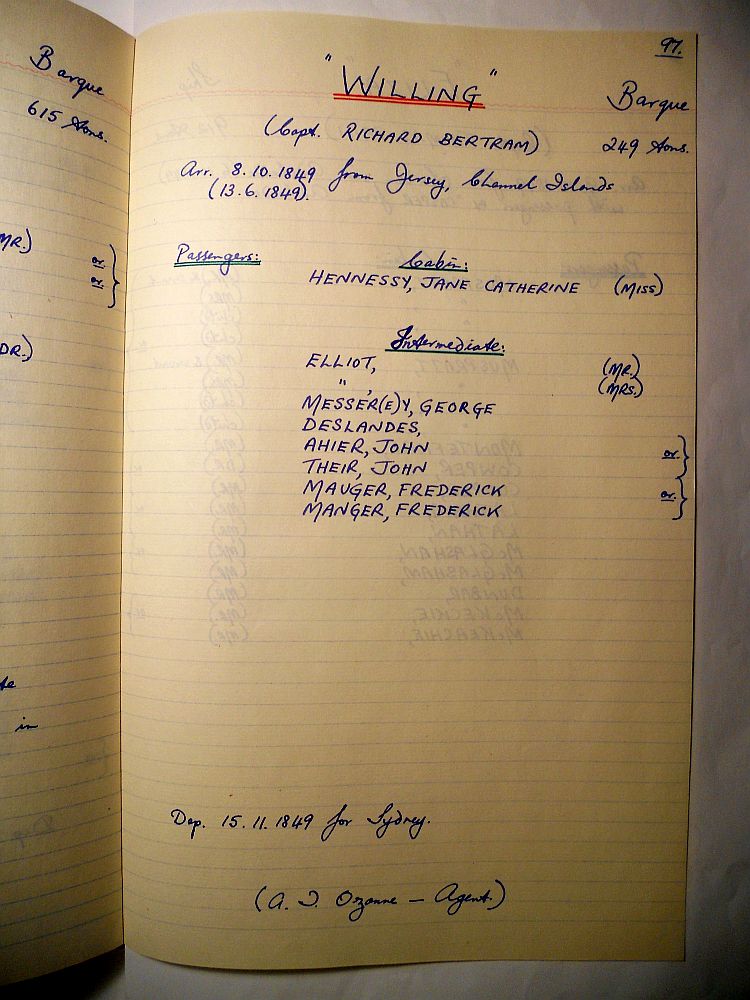 Barque
615 tons.
MR.)
or
or
DR.)
in
97.
"WILLING"
Barque
(Capt. RICHARD BERTRAM) 249 tons.
Arr. 8.10.1849 from Jersey, Channel Islands
(13.6.1849).
Passengers: Cabin:
HENNESSY, JANE CATHERINE (MISS)
Intermediate:
ELLIOT, (MR.)
" , (MRS.)
MESSER(E)Y, GEORGE
DESLANDES,
AHIER, JOHN or
THEIR, JOHN
MAUGER, FREDERICK or
MANGER, FREDERICK
Dep. 15.11.1849 for Sydney.
(A. J. Ozanne – Agent.)